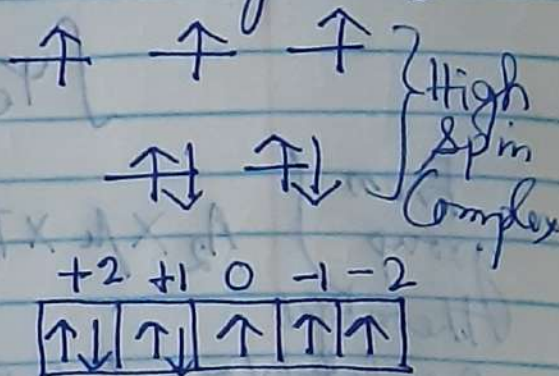 High
Spin
Complex
+2 +1 0 -1 -2